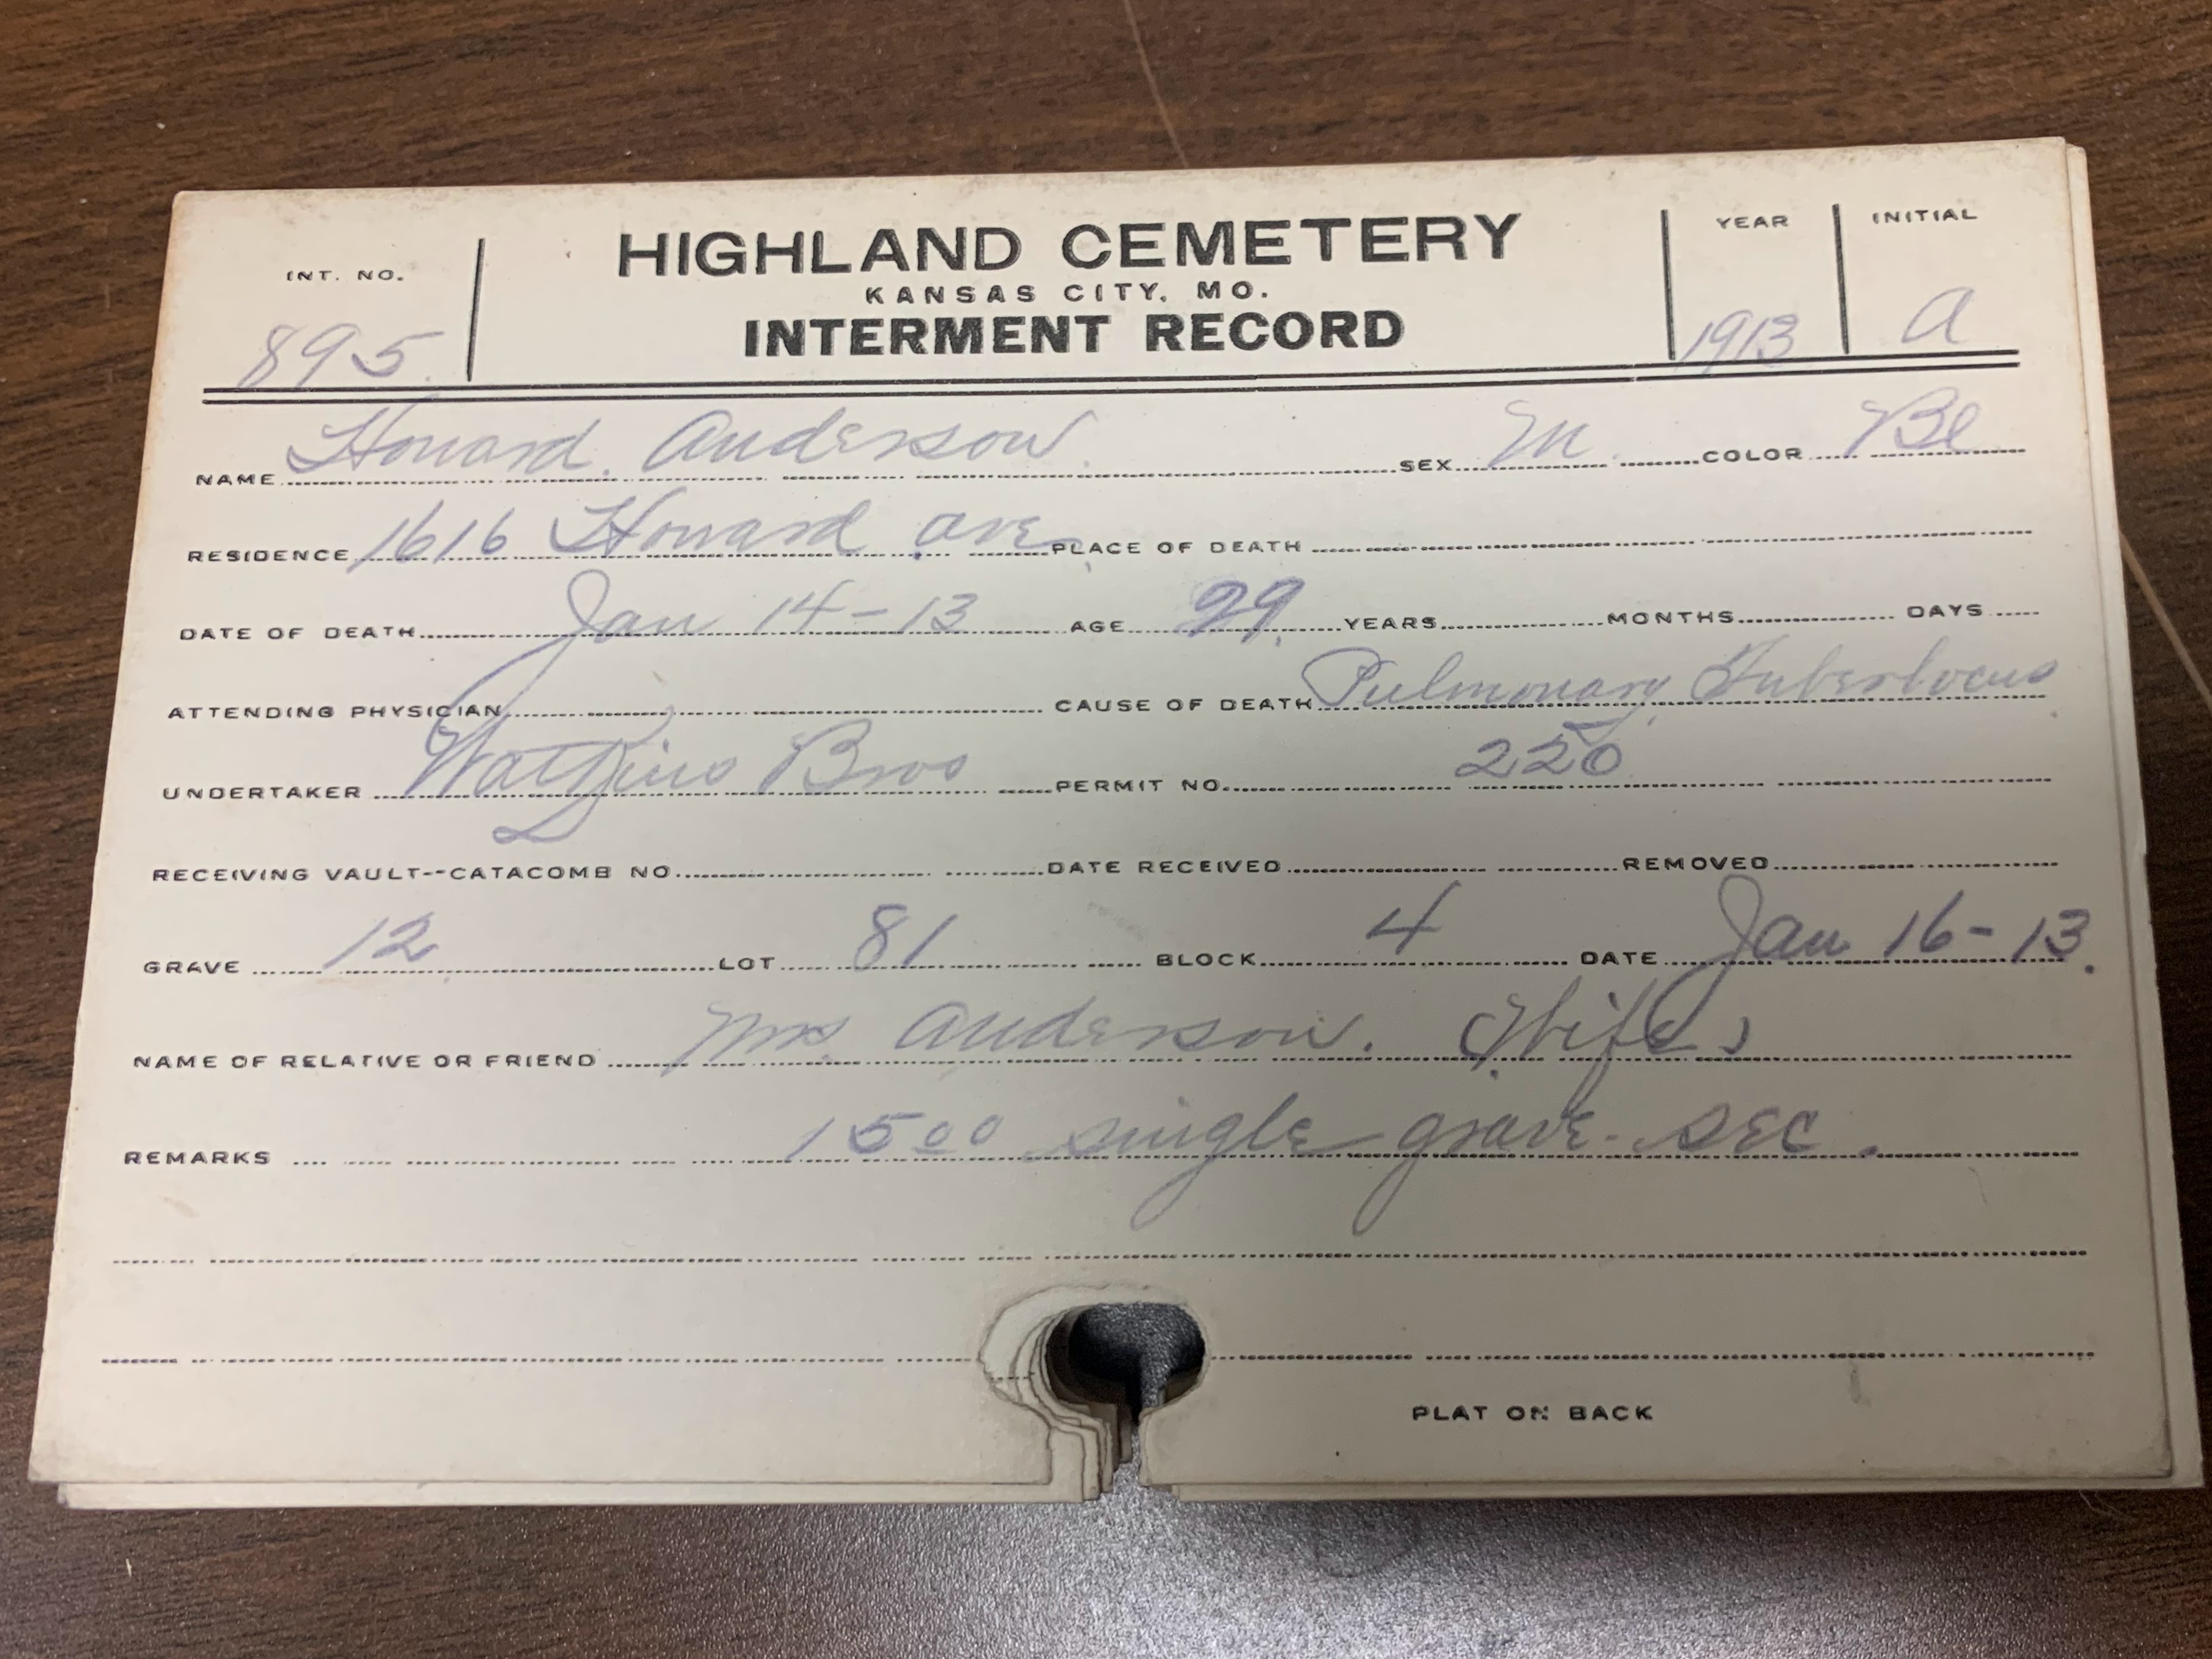 INT. NO. 895
HIGHLAND CEMETERY
KANSAS CITY, MO.
INTERMENT RECORD
YEAR 1913
INITIAL A
NAME Howard Anderson SEX M COLOR Bl
RESIDENCE 1616 Howard Ave PLACE OF DEATH
DATE OF DEATH Jan 14-13 AGE 29 YEARS MONTHS DAYS
ATTENDING PHYSICIAN CAUSE OF DEATH Pulmonary
UNDERTAKER Watkins Bros PERMIT NO. 220
RECEIVING VAULT--CATACOMB NO. DATE RECEIVED REMOVED
GRAVE 12 LOT 81 BLOCK 4 DATE Jan 16-13.
NAME OF RELATIVE OR FRIEND Mrs. Anderson. (Wife)
REMARKS 15 00 single grave - sec.
PLAT ON BACK